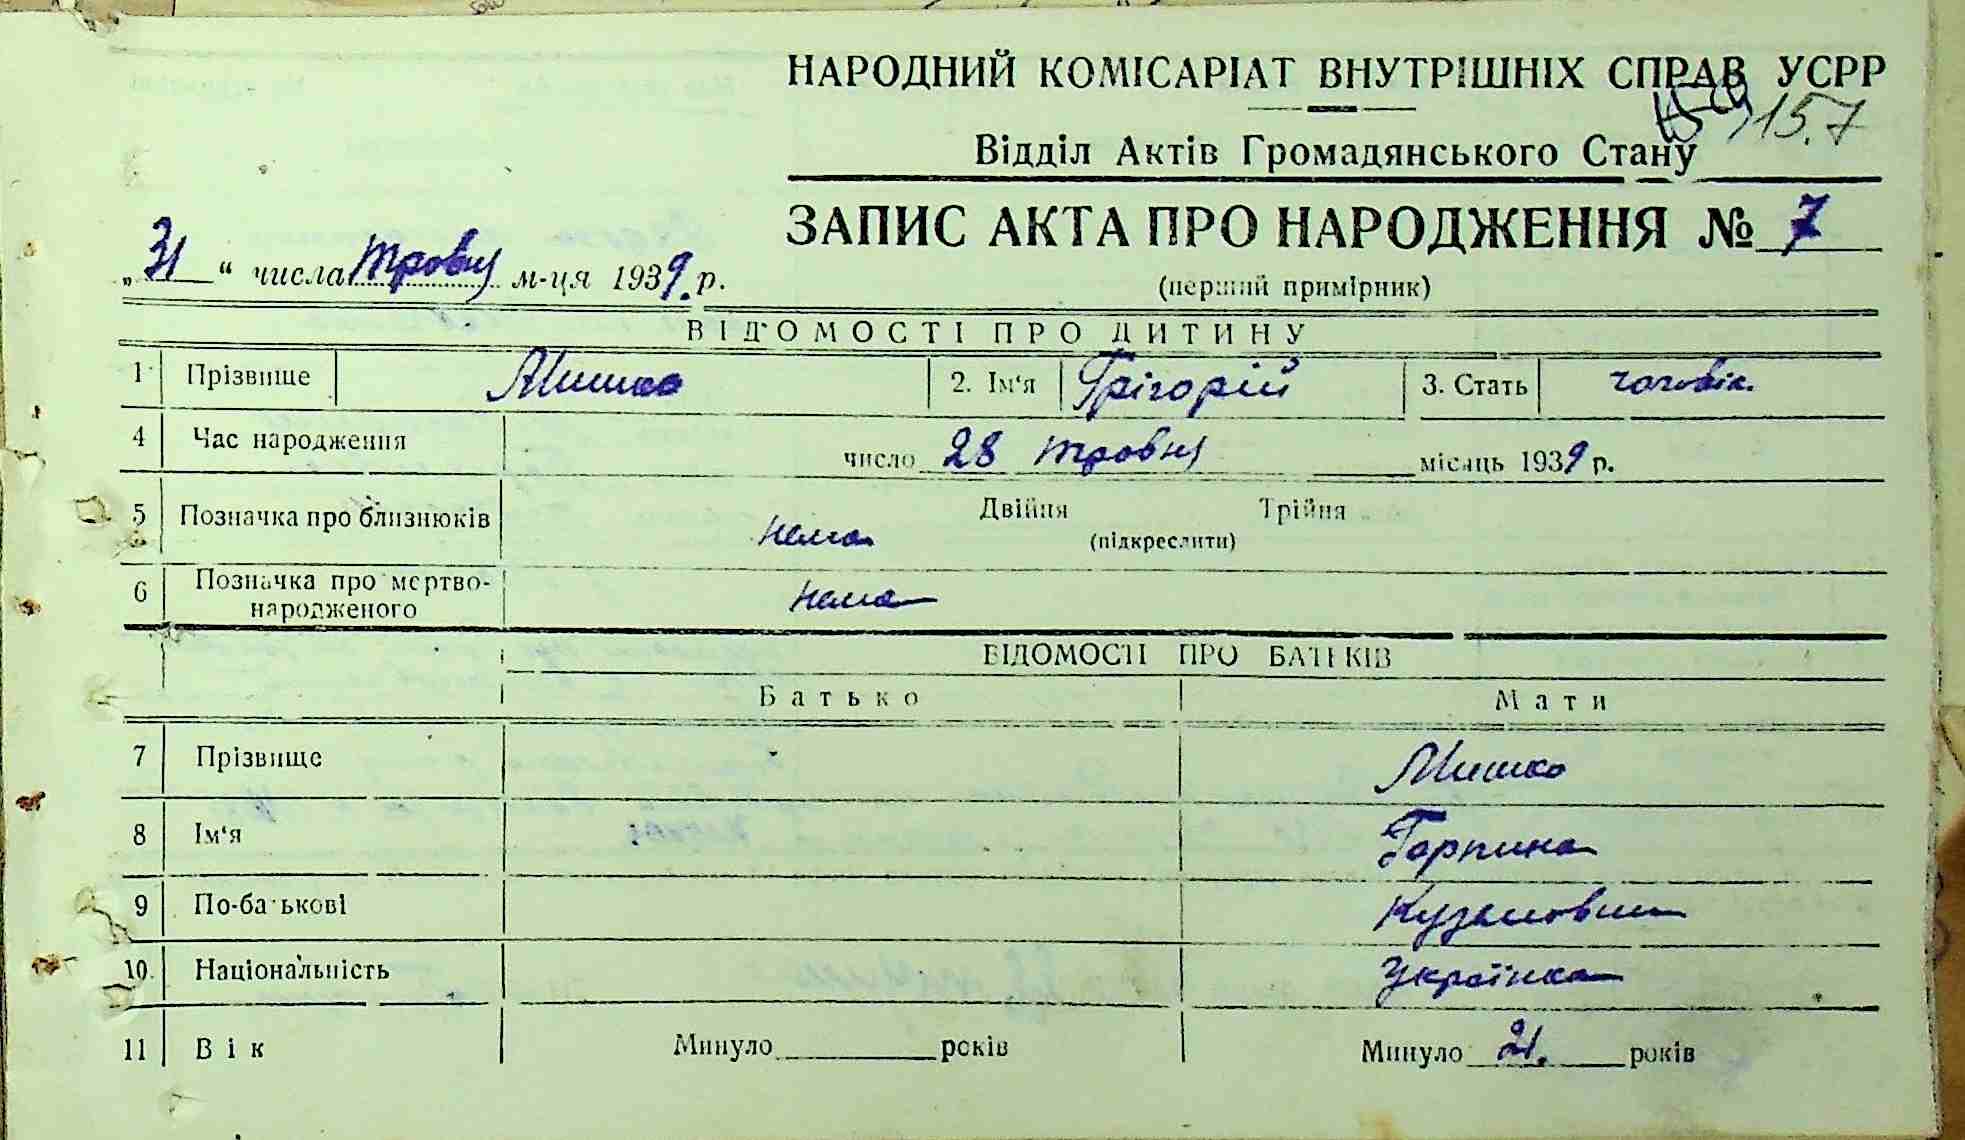 НАРОДНИЙ КОМІСАРІАТ ВНУТРІШНІХ СПРАВ УСРР
15.7
Відділ Актів Громадянського Стану
ЗАПИС АКТА ПРО НАРОДЖЕННЯ № 7
„31“ числа травня м-ця 1939 р.
(перший примірник)
ВІДОМОСТІ ПРО ДИТИНУ
1 Прізвище Мишко 2. Ім'я Грігорій 3. Стать чоловік.
4 Час народження число 28 травня місяць 1939 р.
5 Позначка про близнюків нема Двійня Трійня
(підкреслити)
6 Позначка про мертво-
народженого нема
ВІДОМОСТІ ПРО БАТЬКІВ
Батько Мати
7 Прізвище Мишко
8 Ім'я Горпина
9 По-батькові Кузьмовна
10. Національність Українка
11 Вік Минуло років Минуло 21. років